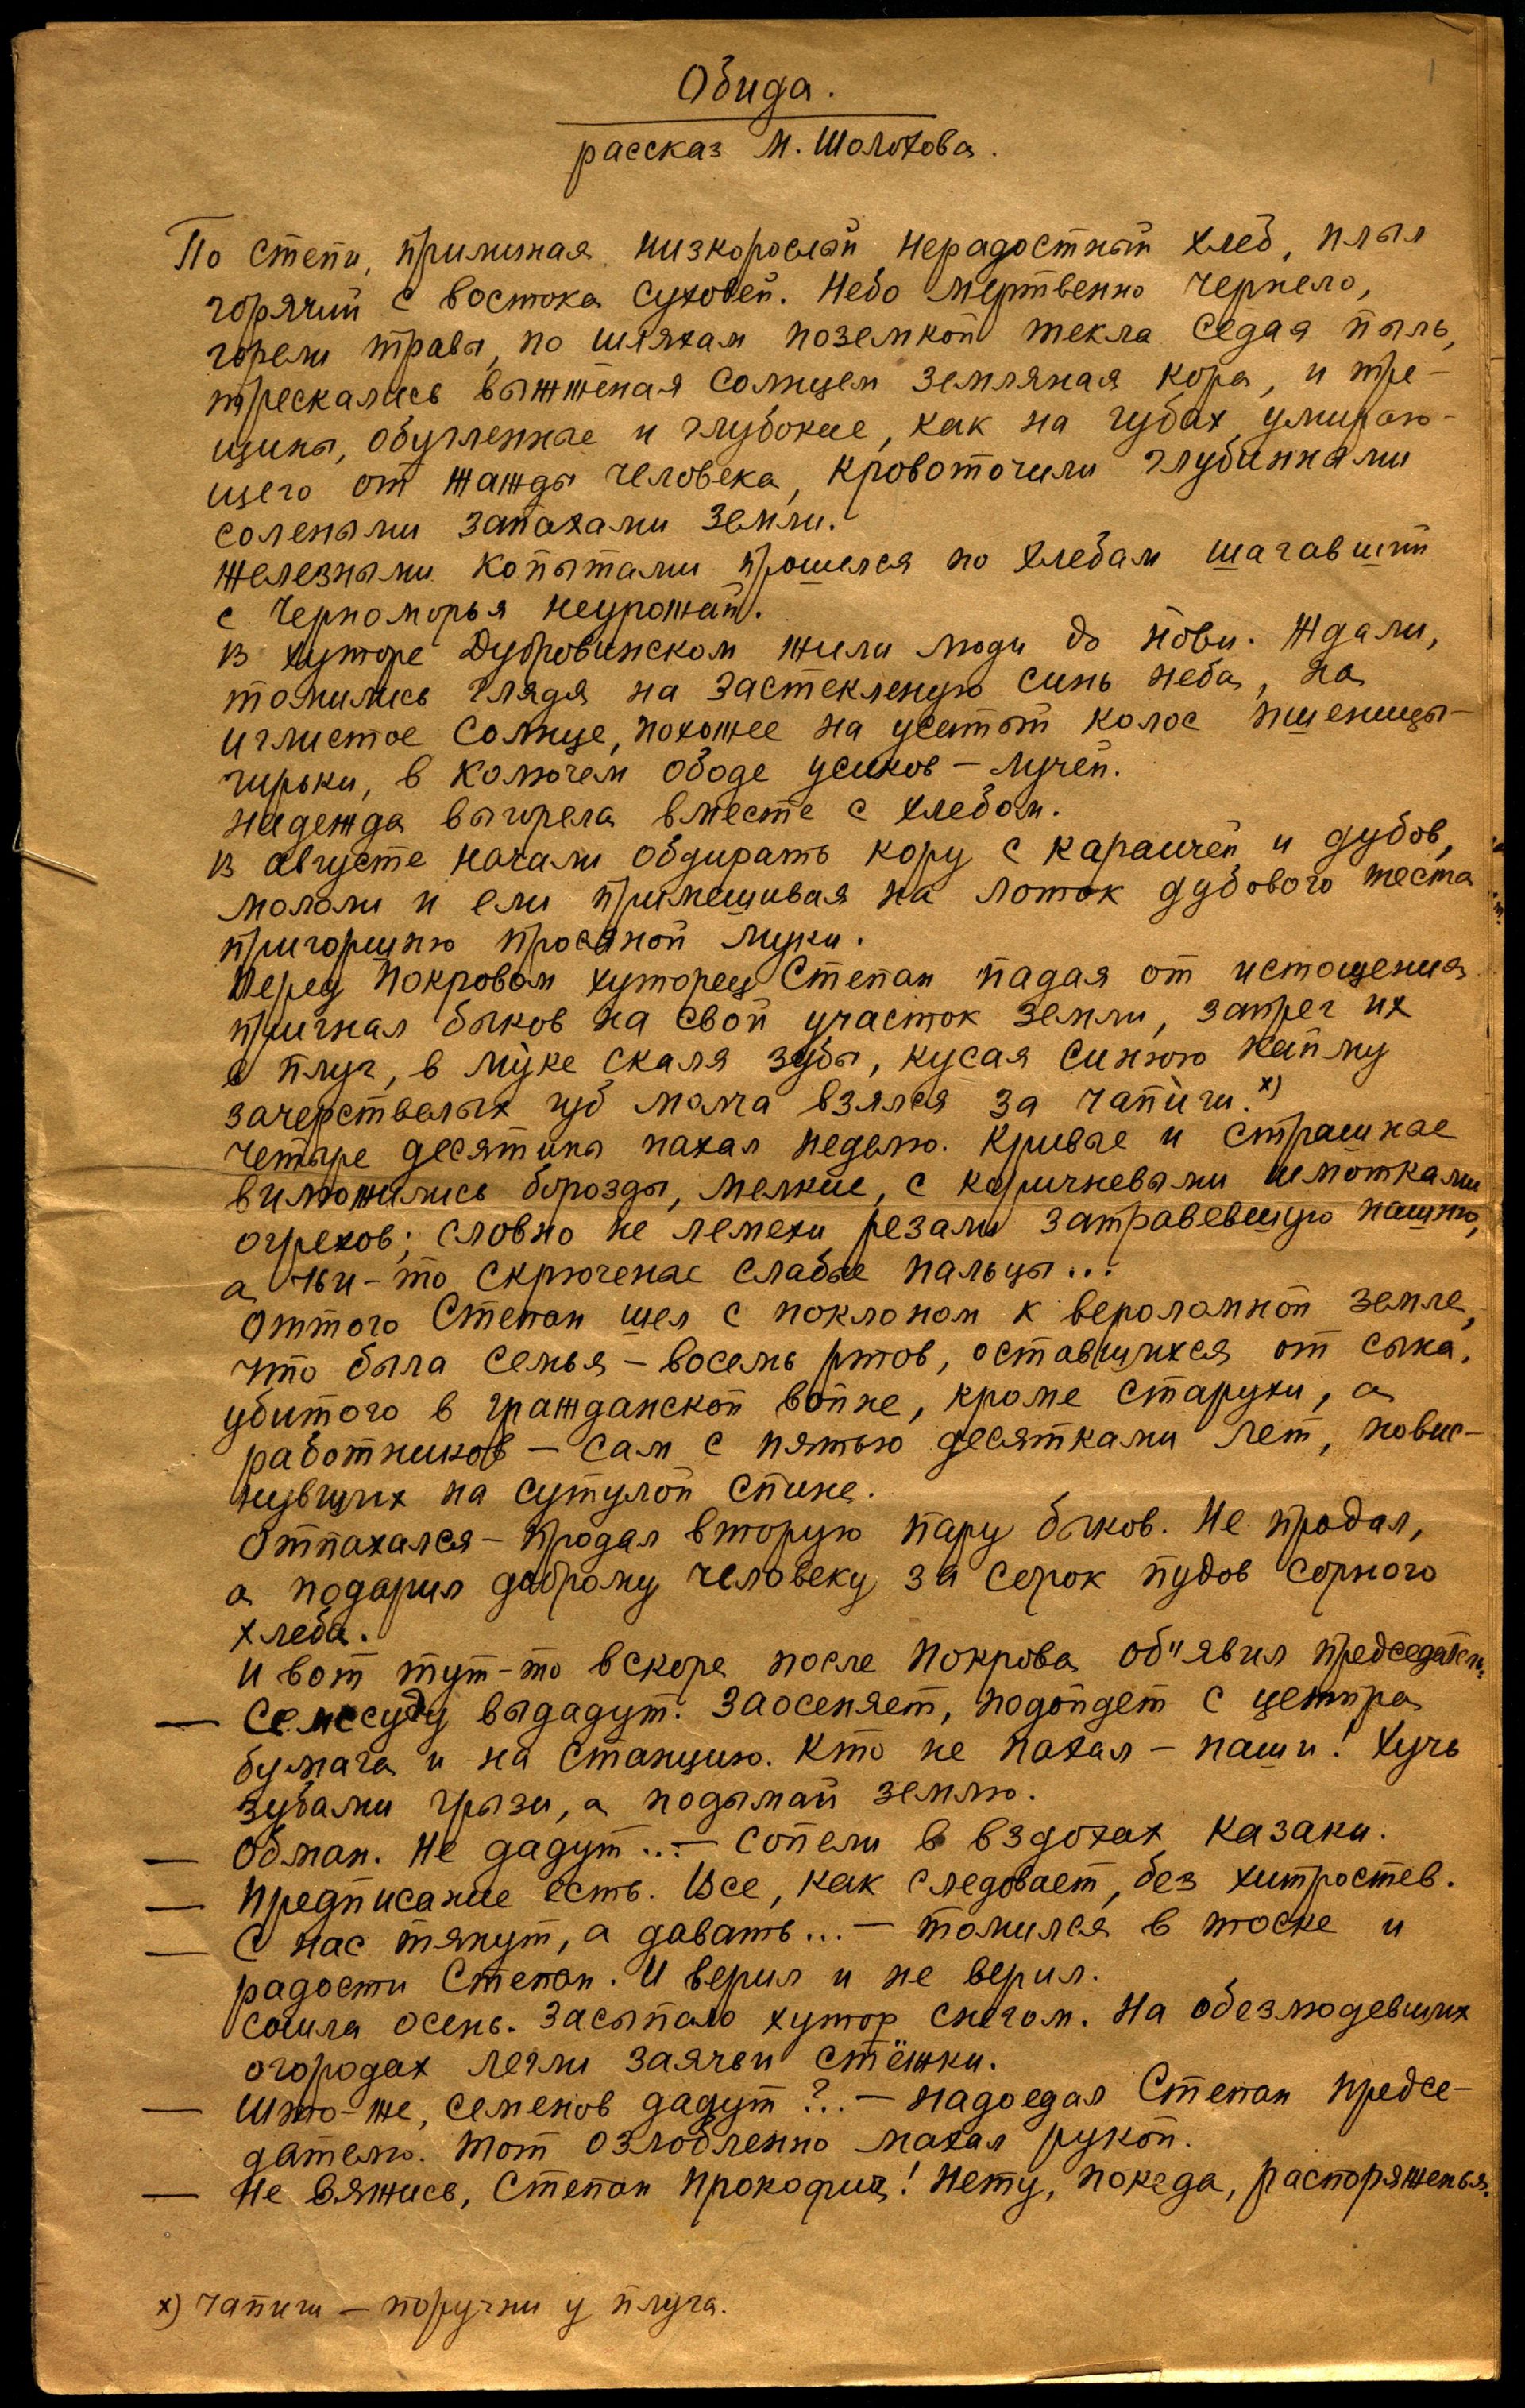 1
Обида.
рассказ М. Шолохова.
По степи, приминая низкорослый нерадостный хлеб, плыл
горячий с востока суховей. Небо мертвенно чернело,
горели травы, по шляхам поземкой текла седая пыль,
трескалась выжженая солнцем земляная кора, и тре-
щины, обугленные и глубокие, как на губах умираю-
щего от жажды человека, кровоточили глубинными
солеными запахами земли.
Железными копытами прошелся по хлебам шагавший
с Черноморья неурожай.
В хуторе Дубровинском жили люди до нови. Ждали,
томились глядя на застекленую синь неба, на
иглистое солнце, похожее на усатый колос пшеницы-
гирьки, в колючем ободе усиков – лучей.
Надежда выгорела вместе с хлебом.
В августе начали обдирать кору с караичей и дубов,
мололи и ели примешивая на лоток дубового теста
пригоршню просяной муки.
Перед Покровом хуторец Степан падая от истощения
пригнал быков на свой участок земли, запрег их
в плуг, в муке скаля зубы, кусая синюю кайму
зачерствелых губ молча взялся за чапиги. х)
Четыре десятины пахал неделю. Кривые и страшные
вилюжились борозды, мелкие, с коричневыми шмотками
огрехов; словно не лемехи резали затравевшую пашню,
а чьи-то скрюченые слабые пальцы...
Оттого Степан шел с поклоном к вероломной земле,
что была семья – восемь ртов, оставшихся от сына,
убитого в гражданской войне, кроме старухи, а
работников – сам с пятью десятками лет, повис-
нувших на сутулой спине.
Отпахался – продал вторую пару быков. Не продал,
а подарил доброму человеку за сорок пудов сорного
хлеба.
И вот тут-то вскоре после Покрова об"явил председатель:
— Семссуду выдадут. Заосеняет, подойдет с центра
бумага и на станцию. Кто не пахал – паши! Хучь
зубами грызи, а подымай землю.
— Обман. Не дадут... – сопели в вздохах казаки.
— Предписание есть. Все, как следовает, без хитростев.
— С нас тянут, а давать... – томился в тоске и
радости Степан. И верил и не верил.
Сошла осень. Засыпало хутор снегом. На обезлюдевших
огородах легли заячьи стёжки.
— Што-же, семенов дадут?.. – надоедал Степан предсе-
дателю. Тот озлобленно махал рукой.
— Не вяжись, Степан Прокофич! Нету, покеда, распоряженья.
х) Чапиги – поручни у плуга.